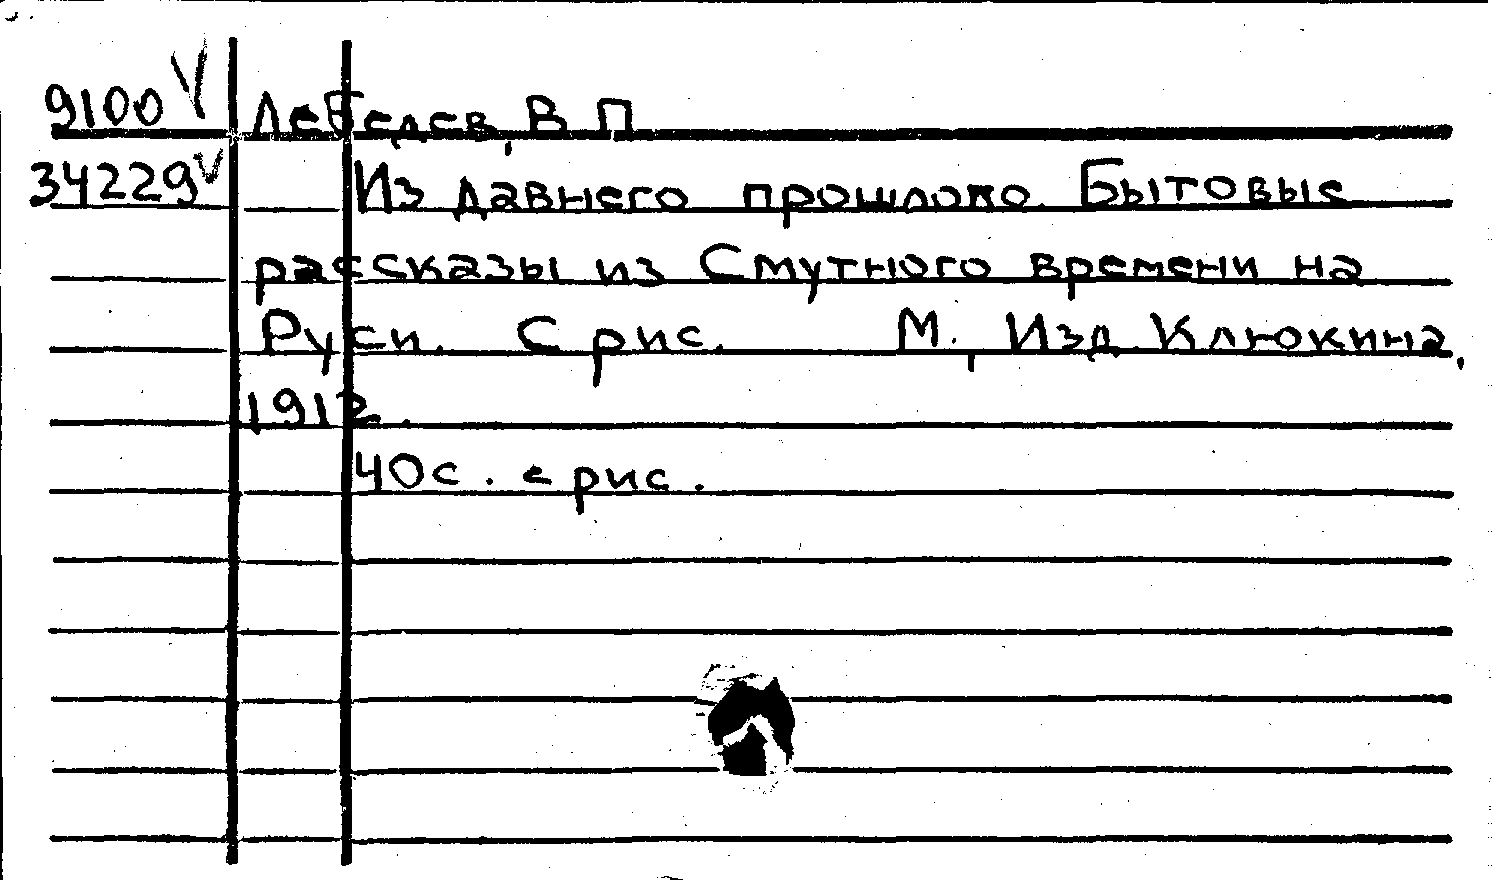 9100 V Лебедев, В. П.
34229 V Из давнего прошлого. Бытовые
рассказы из Смутного времени на
Руси. С рис. М., Изд. Клюкина,
1912.
40 с. с рис.